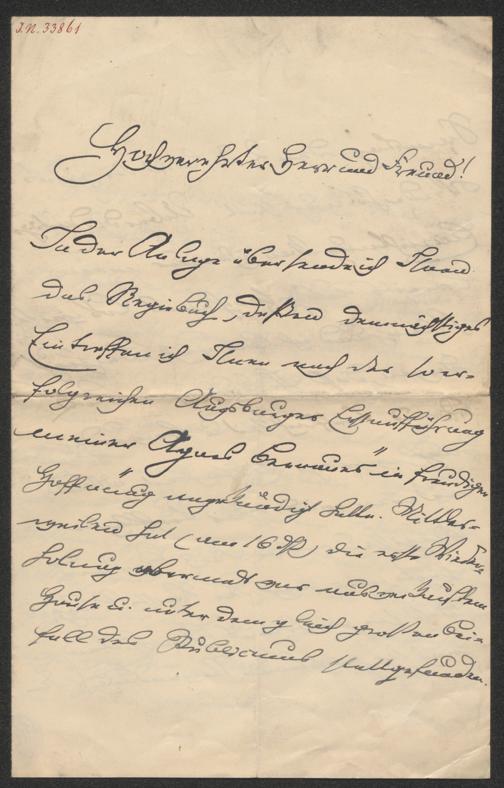 I.N. 33861
Hochverehrter Herr und Freund!
In der Anlage übersende ich Ihnen
das Regiebuch, deßen demnächstiges
Eintreffen ich Ihnen nach der so er-
folgreichen Augsburger Erstaufführung
meiner „Agnes Bernauer" in freudiger
Hoffnung angekündigt hatte. Mittler-
weilen hat (am 16 d. M.) die erste Wieder-
holung abermals vor ausverkauftem
Hause u. unter dem gleich großen Bei-
fall des Publicums stattgefunden.